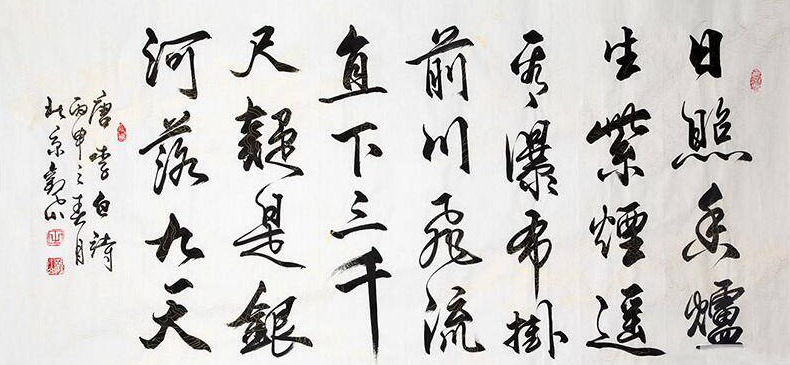 日照香爐
生紫煙遥
看瀑布掛
前川飛流
直下三千
尺疑是銀
河落九天
唐李白詩
丙申之春月
於京